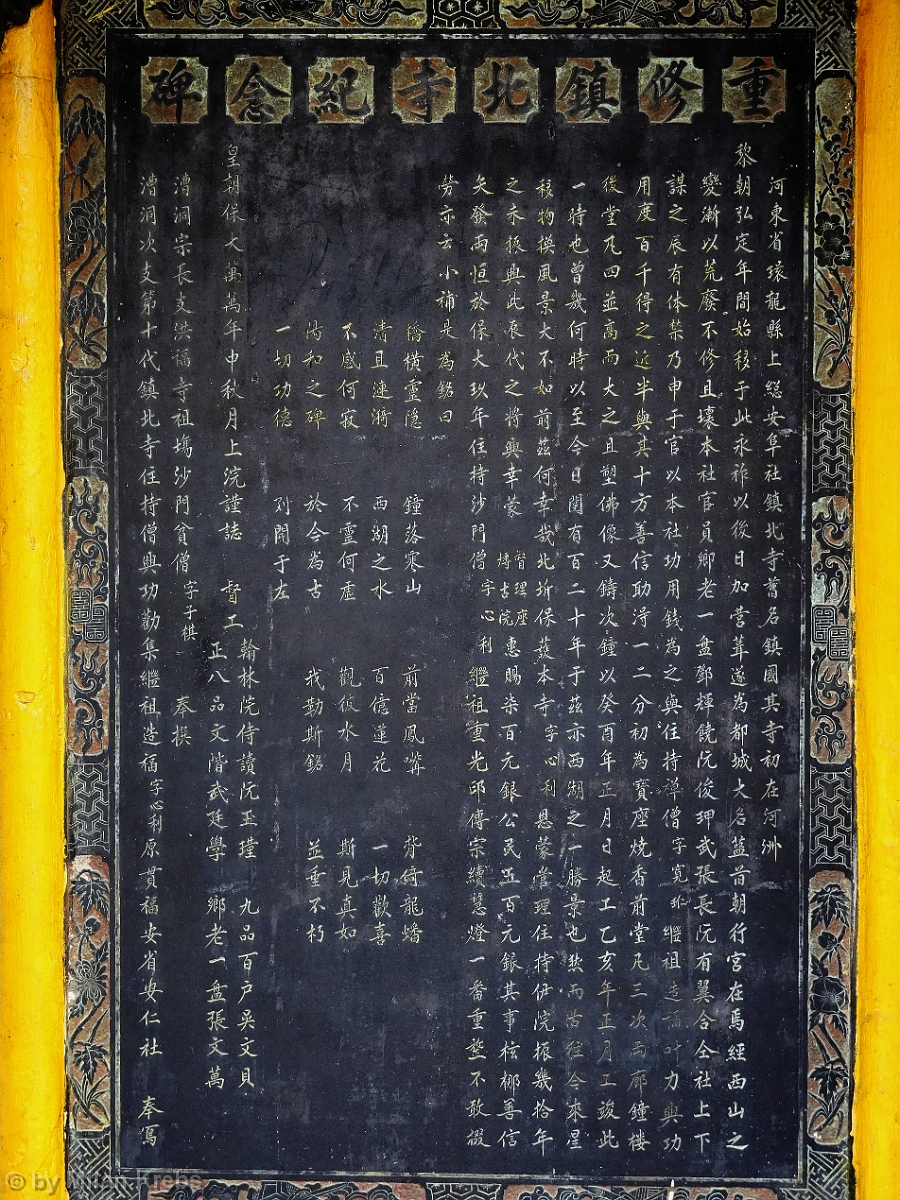 重修鎮北寺紀念碑
河東省環龍縣上總安阜社鎮北寺舊名鎮國其寺初在河洲
黎朝弘定年間始移于此永祚以後日加營葺遂為都城大名藍昔朝行宮在焉經西山之
變漸以荒廢不修且壞本社官員鄉老一盤鄧輝饒阮俊珅武張長阮有翼合全社上下
謀之辰有体禁乃申于官以本社功用錢為之與住持禪僧字寬 繼祖造福叶力與功
用度百千得之近半與其十方善信助淂一二分初為寶座燒香前堂凡三次兩廊鐘樓
後堂凡四並高而大之且塑佛像又鑄次鐘以癸酉年正月日起工乙亥年正月工竣此
一時也曾幾何時以至今日閱有百二十年于茲亦西湖之一勝景也然而古徃今來星
移物換風景大不如前茲何幸哉北圻保護本寺字心利恩蒙管理住持伊院振幾拾年
之未極與此辰代之將興幸蒙督理座博古院惠賜柒百元銀公民五百元銀其事檀梛善信
矣發而恒於保大玖年住持沙門僧字心利繼祖重光印傳宗續慧燈一番重整不敢掇
勞亦云小補是為銘曰
橋橫靈隐 鐘落寒山 前當鳳嘴 背倚龍蟠
清且漣漪 西湖之水 百億蓮花 一切歡喜
不感何寂 不靈何虛 觀彼水月 斯見真如
陽和之碑 於今為古 我勒斯銘 並垂不朽
一切功德 列開于左
皇朝保大萬萬年中秋月上浣謹誌 督工 翰林院侍讀阮玉瑾 九品百户吳文貝
正八品文階武廷學 鄉老一盤張文萬
漕洞宗長支洪福寺祖塲沙門貧僧字子棋 奉撰
漕洞次支第十代鎮北寺住持僧興功勸集繼祖造福字心利原貫福安省安仁社 奉寫
© by Milan Krebs